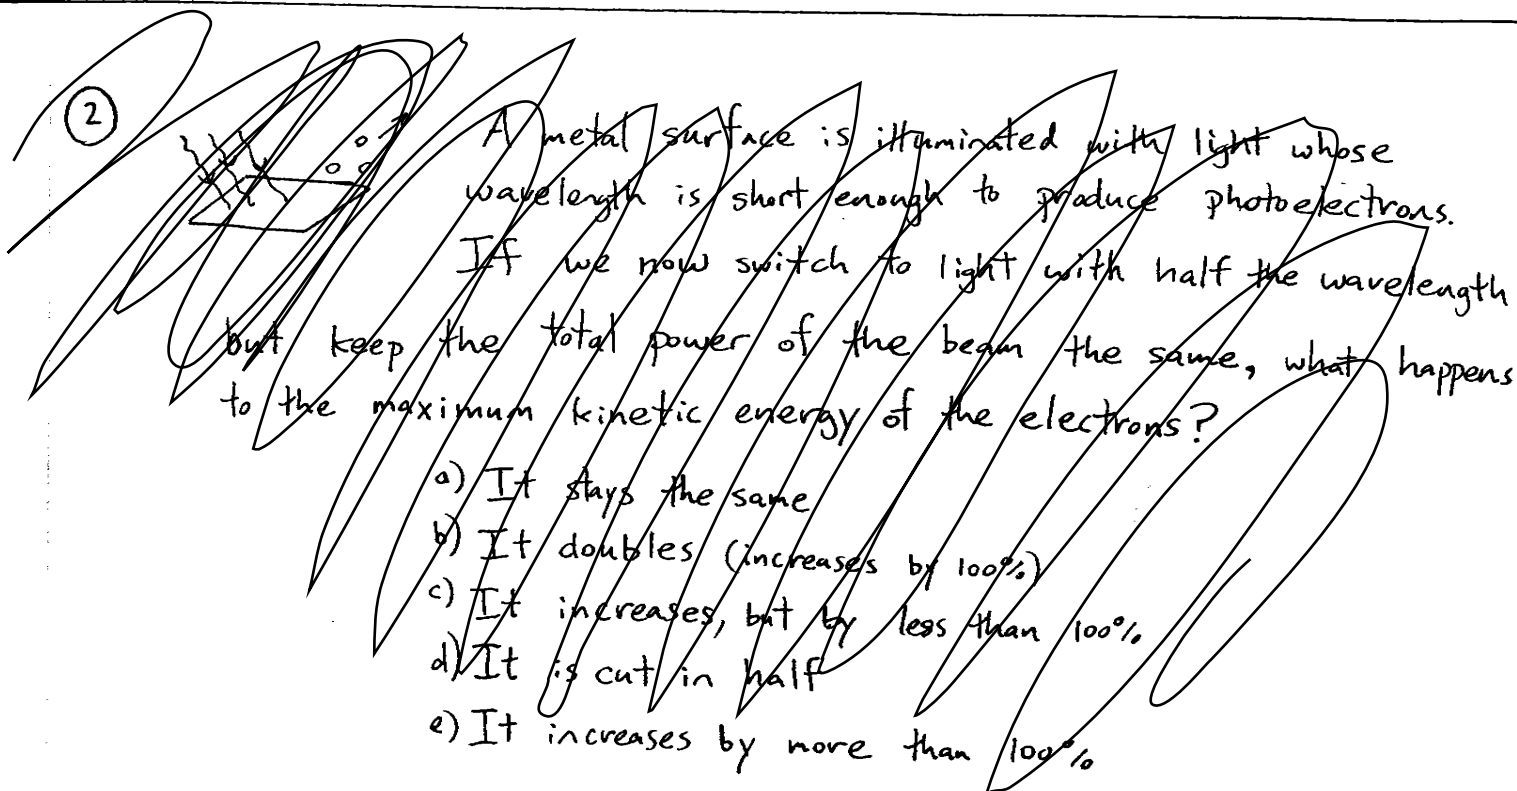 2
A metal surface is illuminated with light whose
wavelength is short enough to produce photoelectrons.
If we now switch to light with half the wavelength
but keep the total power of the beam the same, what happens
to the maximum kinetic energy of the electrons?
a) It stays the same
b) It doubles (increases by 100%)
c) It increases, but by less than 100%
d) It is cut in half
e) It increases by more than 100%